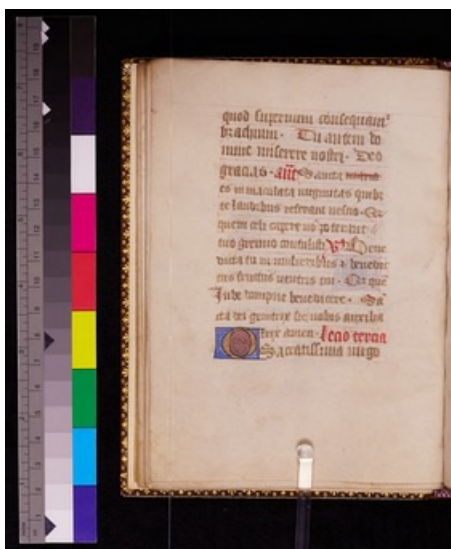 quod supremum consequam᷒
brachium · Tu autem do
mine miserere nostri · Deo
gracias · Sancta
et inmaculata virginitas quibꝫ
te laudibus referam nescio · Qꝛ
quem celi capere nō poterant
tuo gremio contulisti Bene
dicta tu in mulieribꝫ ⁊ benedic
tus fructus ventris tui · Qꝛ que
Jube dompne benedicere · Sā
cta dei genitrix sit nobis auxilia
trix amen · lecio tercia
O Sacratissima virgo